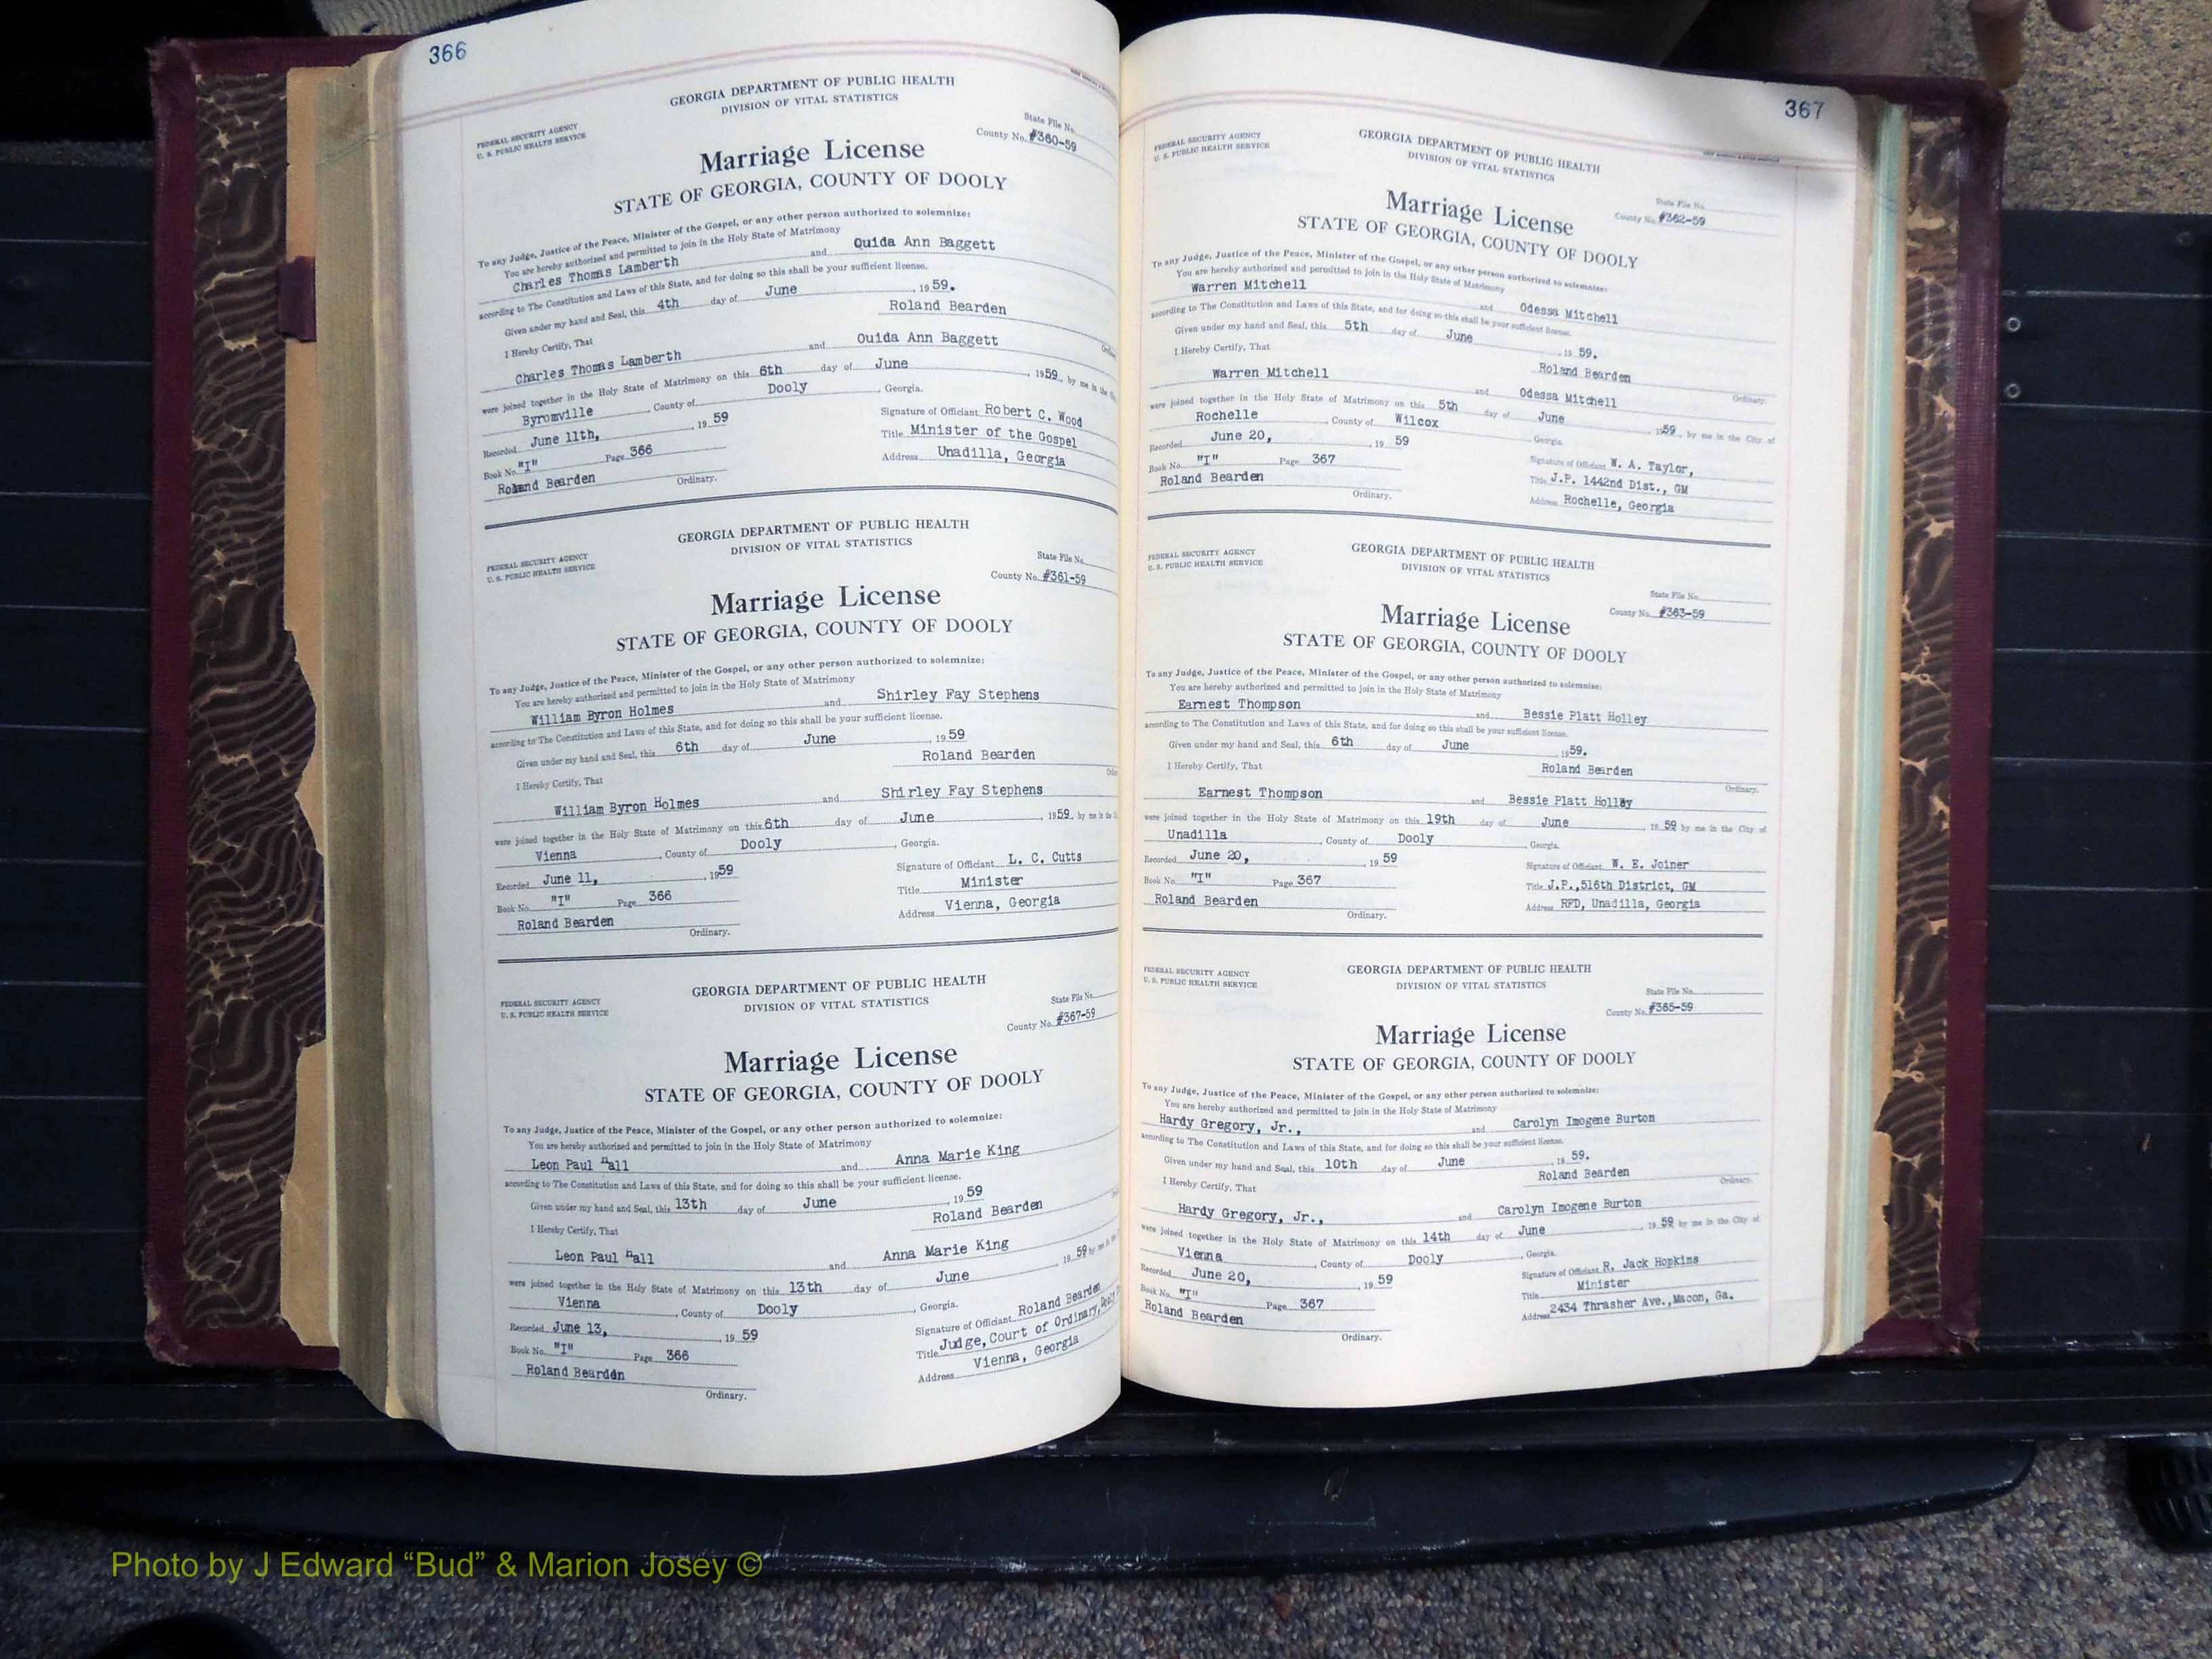 366
GEORGIA DEPARTMENT OF PUBLIC HEALTH
DIVISION OF VITAL STATISTICS
FEDERAL SECURITY AGENCY
U. S. PUBLIC HEALTH SERVICE
State File No.
County No. #360-59
Marriage License
STATE OF GEORGIA, COUNTY OF DOOLY
To any Judge, Justice of the Peace, Minister of the Gospel, or any other person authorized to solemnize:
You are hereby authorized and permitted to join in the Holy State of Matrimony
Charles Thomas Lamberth and Quida Ann Baggett
according to The Constitution and Laws of this State, and for doing so this shall be your sufficient license.
Given under my hand and Seal, this 4th day of June, 19 59.
Roland Bearden
I Hereby Certify, That
Charles Thomas Lamberth and Ouida Ann Baggett
were joined together in the Holy State of Matrimony on this 6th day of June, 1959, by me in the
Byromville, County of Dooly, Georgia.
Recorded June 11th, 19 59
Signature of Officiant Robert C. Wood
Book No. "I" Page 366
Title Minister of the Gospel
Roland Bearden
Address Unadilla, Georgia
Ordinary.
GEORGIA DEPARTMENT OF PUBLIC HEALTH
DIVISION OF VITAL STATISTICS
FEDERAL SECURITY AGENCY
U. S. PUBLIC HEALTH SERVICE
State File No.
County No. #361-59
Marriage License
STATE OF GEORGIA, COUNTY OF DOOLY
To any Judge, Justice of the Peace, Minister of the Gospel, or any other person authorized to solemnize:
You are hereby authorized and permitted to join in the Holy State of Matrimony
William Byron Holmes and Shirley Fay Stephens
according to The Constitution and Laws of this State, and for doing so this shall be your sufficient license.
Given under my hand and Seal, this 6th day of June, 19 59
Roland Bearden
I Hereby Certify, That
William Byron Holmes and Shirley Fay Stephens
were joined together in the Holy State of Matrimony on this 6th day of June, 1959, by me in the
Vienna, County of Dooly, Georgia.
Recorded June 11, 1959
Signature of Officiant L. C. Cutts
Book No. "I" Page 366
Title Minister
Roland Bearden
Address Vienna, Georgia
Ordinary.
GEORGIA DEPARTMENT OF PUBLIC HEALTH
DIVISION OF VITAL STATISTICS
FEDERAL SECURITY AGENCY
U. S. PUBLIC HEALTH SERVICE
State File No.
County No. #367-59
Marriage License
STATE OF GEORGIA, COUNTY OF DOOLY
To any Judge, Justice of the Peace, Minister of the Gospel, or any other person authorized to solemnize:
You are hereby authorized and permitted to join in the Holy State of Matrimony
Leon Paul Hall and Anna Marie King
according to The Constitution and Laws of this State, and for doing so this shall be your sufficient license.
Given under my hand and Seal, this 13th day of June, 19 59
Roland Bearden
I Hereby Certify, That
Leon Paul Hall and Anna Marie King
were joined together in the Holy State of Matrimony on this 13th day of June, 19 59 by me in the
Vienna, County of Dooly, Georgia.
Recorded June 13, 19 59
Signature of Officiant Roland Bearden
Book No. "I" Page 366
Title Judge, Court of Ordinary, Dooly
Roland Bearden
Address Vienna, Georgia
Ordinary.
367
GEORGIA DEPARTMENT OF PUBLIC HEALTH
DIVISION OF VITAL STATISTICS
FEDERAL SECURITY AGENCY
U. S. PUBLIC HEALTH SERVICE
State File No.
County No. #362-59
Marriage License
STATE OF GEORGIA, COUNTY OF DOOLY
To any Judge, Justice of the Peace, Minister of the Gospel, or any other person authorized to solemnize:
You are hereby authorized and permitted to join in the Holy State of Matrimony
Warren Mitchell and Odessa Mitchell
according to The Constitution and Laws of this State, and for doing so this shall be your sufficient license.
Given under my hand and Seal, this 5th day of June, 19 59.
Roland Bearden
I Hereby Certify, That
Ordinary.
Warren Mitchell and Odessa Mitchell
were joined together in the Holy State of Matrimony on this 5th day of June, 1959, by me in the City of
Rochelle, County of Wilcox, Georgia.
Recorded June 20, 19 59
Signature of Officiant W. A. Taylor,
Book No. "I" Page 367
Title J.P. 1442nd Dist., GM
Roland Bearden
Address Rochelle, Georgia
Ordinary.
GEORGIA DEPARTMENT OF PUBLIC HEALTH
DIVISION OF VITAL STATISTICS
FEDERAL SECURITY AGENCY
U. S. PUBLIC HEALTH SERVICE
State File No.
County No. #363-59
Marriage License
STATE OF GEORGIA, COUNTY OF DOOLY
To any Judge, Justice of the Peace, Minister of the Gospel, or any other person authorized to solemnize:
You are hereby authorized and permitted to join in the Holy State of Matrimony
Earnest Thompson and Bessie Platt Holley
according to The Constitution and Laws of this State, and for doing so this shall be your sufficient license.
Given under my hand and Seal, this 6th day of June, 1959.
Roland Bearden
I Hereby Certify, That
Ordinary.
Earnest Thompson and Bessie Platt Holley
were joined together in the Holy State of Matrimony on this 19th day of June, 19 59 by me in the City of
Unadilla, County of Dooly, Georgia.
Recorded June 20, 19 59
Signature of Officiant W. E. Joiner
Book No. "I" Page 367
Title J.P.,516th District, GM
Roland Bearden
Address RFD, Unadilla, Georgia
Ordinary.
GEORGIA DEPARTMENT OF PUBLIC HEALTH
DIVISION OF VITAL STATISTICS
FEDERAL SECURITY AGENCY
U. S. PUBLIC HEALTH SERVICE
State File No.
County No. #365-59
Marriage License
STATE OF GEORGIA, COUNTY OF DOOLY
To any Judge, Justice of the Peace, Minister of the Gospel, or any other person authorized to solemnize:
You are hereby authorized and permitted to join in the Holy State of Matrimony
Hardy Gregory, Jr., and Carolyn Imogene Burton
according to The Constitution and Laws of this State, and for doing so this shall be your sufficient license.
Given under my hand and Seal, this 10th day of June, 19 59.
Roland Bearden
I Hereby Certify, That
Ordinary.
Hardy Gregory, Jr., and Carolyn Imogene Burton
were joined together in the Holy State of Matrimony on this 14th day of June, 19 59 by me in the City of
Vienna, County of Dooly, Georgia.
Recorded June 20, 19 59
Signature of Officiant R. Jack Hopkins
Book No. "I" Page 367
Title Minister
Roland Bearden
Address 2434 Thrasher Ave.,Macon, Ga.
Ordinary.
Photo by J Edward “Bud” & Marion Josey ©